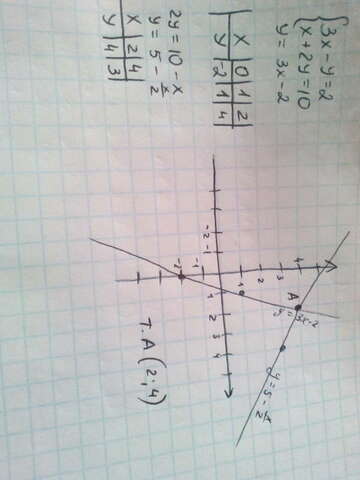 {3x - y = 2
{x + 2y = 10
y = 3x - 2
x | 0 | 1 | 2
y | -2 | 1 | 4
2y = 10 - x
y = 5 - x/2
x | 2 | 4
y | 4 | 3
4
3
2
1
-1
-2
-2 -1
1 2 3 4
A
y = 3x - 2
y = 5 - x/2
т. A (2; 4)